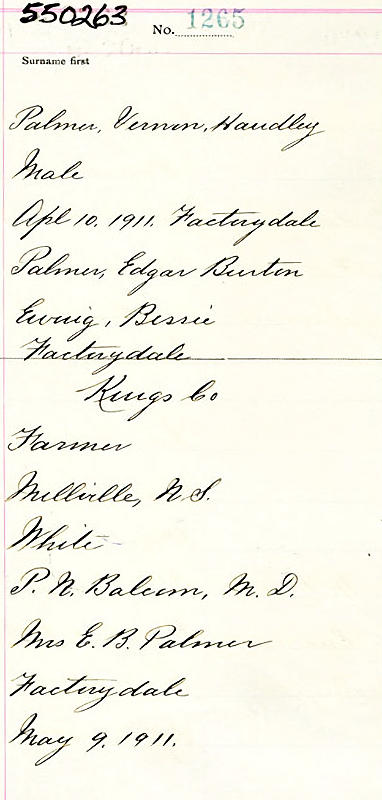 550263
No. 1265
Surname first
Palmer, Vernon, Handley
Male
Apl 10. 1911. Factorydale
Palmer, Edgar Burton
Ewing, Bessie
Factorydale
Kings Co
Farmer
Millville, N S.
White
P. N. Balcom, M. D.
Mrs E. B. Palmer
Factorydale
May 9. 1911.